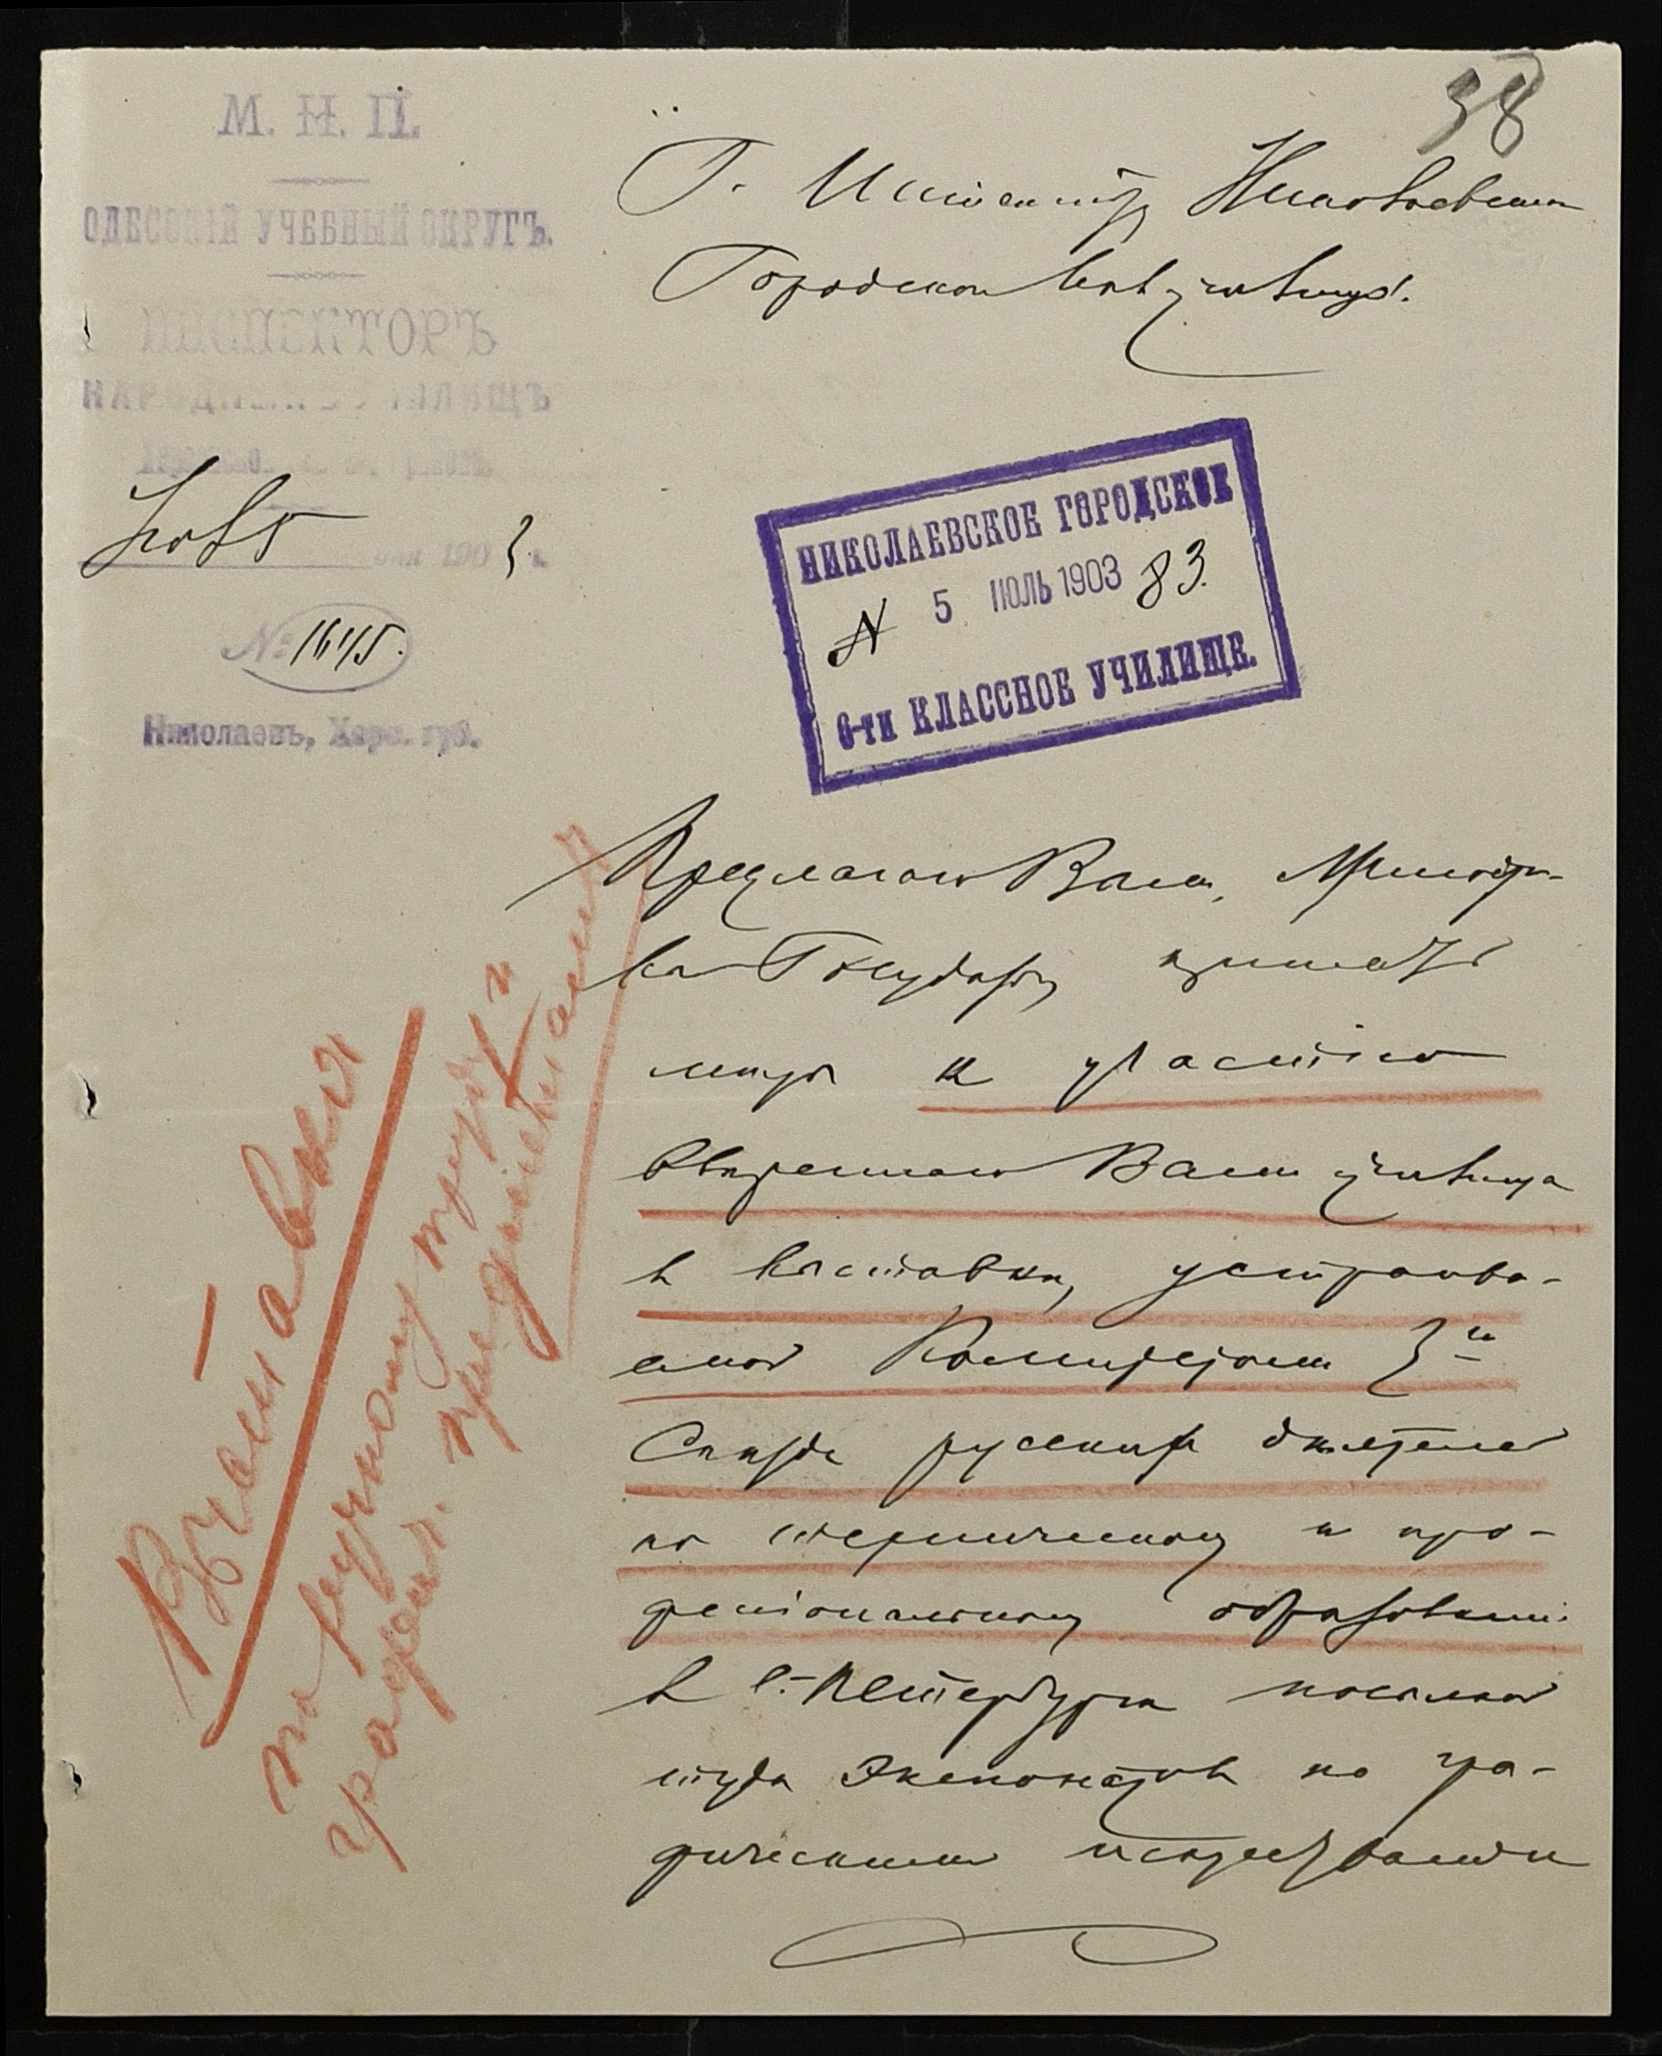 38
М. Н. П.
ОДЕССКІЙ УЧЕБНЫЙ ОКРУГЪ.
ИНСПЕКТОРЪ
НАРОДНЫХЪ УЧИЛИЩЪ
190 3 г.
№ 1645.
Николаевъ, Херс. губ.
Г. Инспектору Николаевскаго
Городского училища.
НИКОЛАЕВСКОЕ ГОРОДСКОЕ
N 5 ІЮЛЬ 1903 83.
6-ти КЛАССНОЕ УЧИЛИЩЕ.
Предлагаю Вамъ, Милости-
вый Государь, принять
мѣры к участію
ввѣреннаго Вамъ училища
в выставкѣ, устраива-
емой Комитетомъ 3го
Съѣзда русскихъ дѣятелей
по техническому и про-
фессіональному образованію
в С.-Петербургѣ посылкой
туда экспонатовъ по гра-
фическимъ искусствамъ и
выставки
по ручному труду и
график.